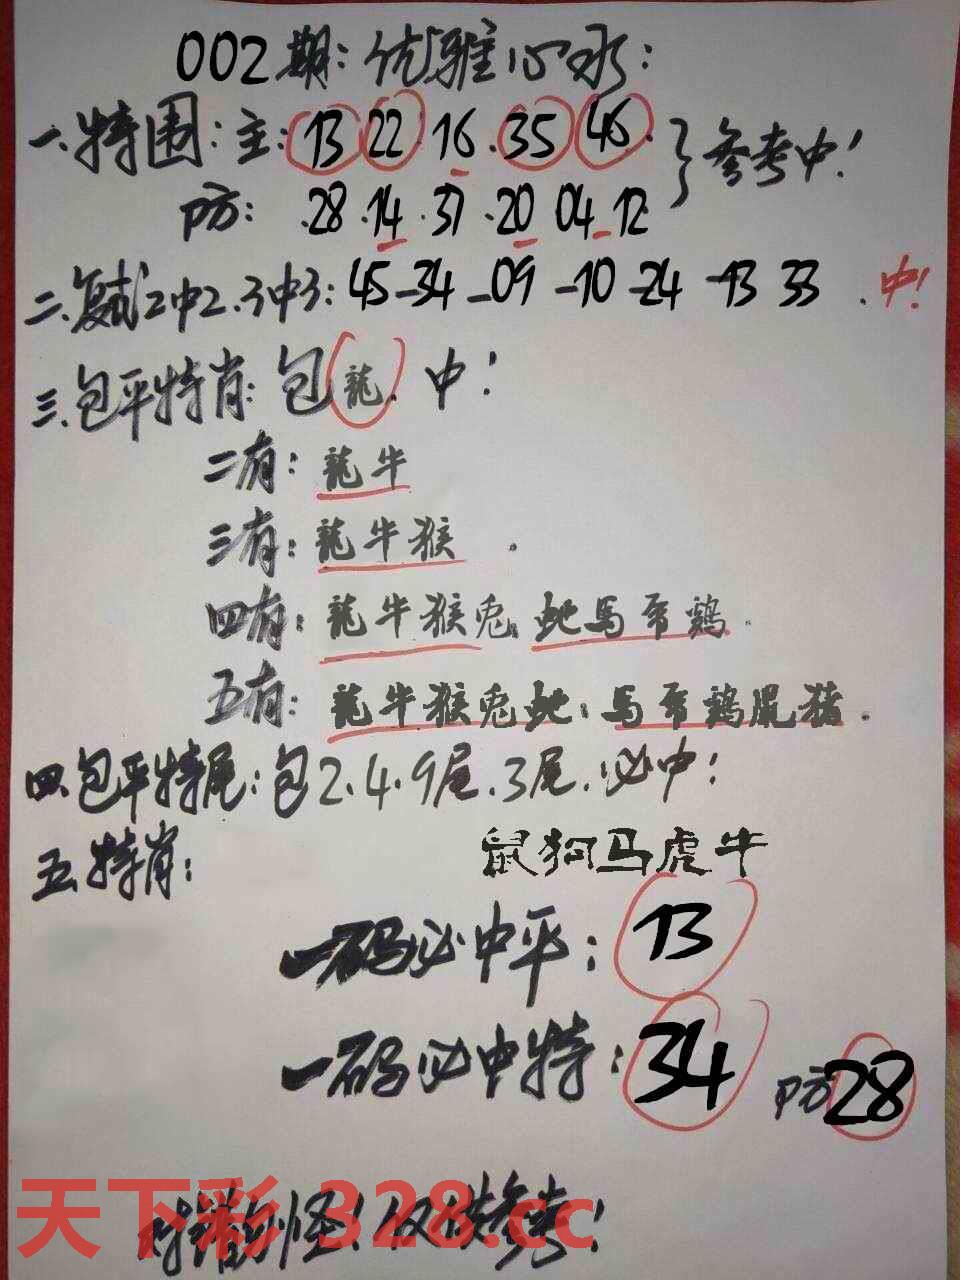 002期:优雅心水:
一.特围:主:13 22 16.35 46.
防:.28.14.37.20 04 12.
参考中!
二.复式2中2.3中3:45-34-09-10-24-13 33.中!
三.包平特肖:包龍.中!
二有:龍牛
三有:龍牛猴.
四有:龍牛猴兎.蛇馬 鷄.
五有:龍牛猴兎蛇.馬 鷄鼠猪.
四.包平特尾:包2.4.9尾.3尾.必中!
五.特肖: 鼠狗马虎牛
一码必中平:13
一码必中特:34 防28
错 怪!仅供参考!
天下彩 328.cc